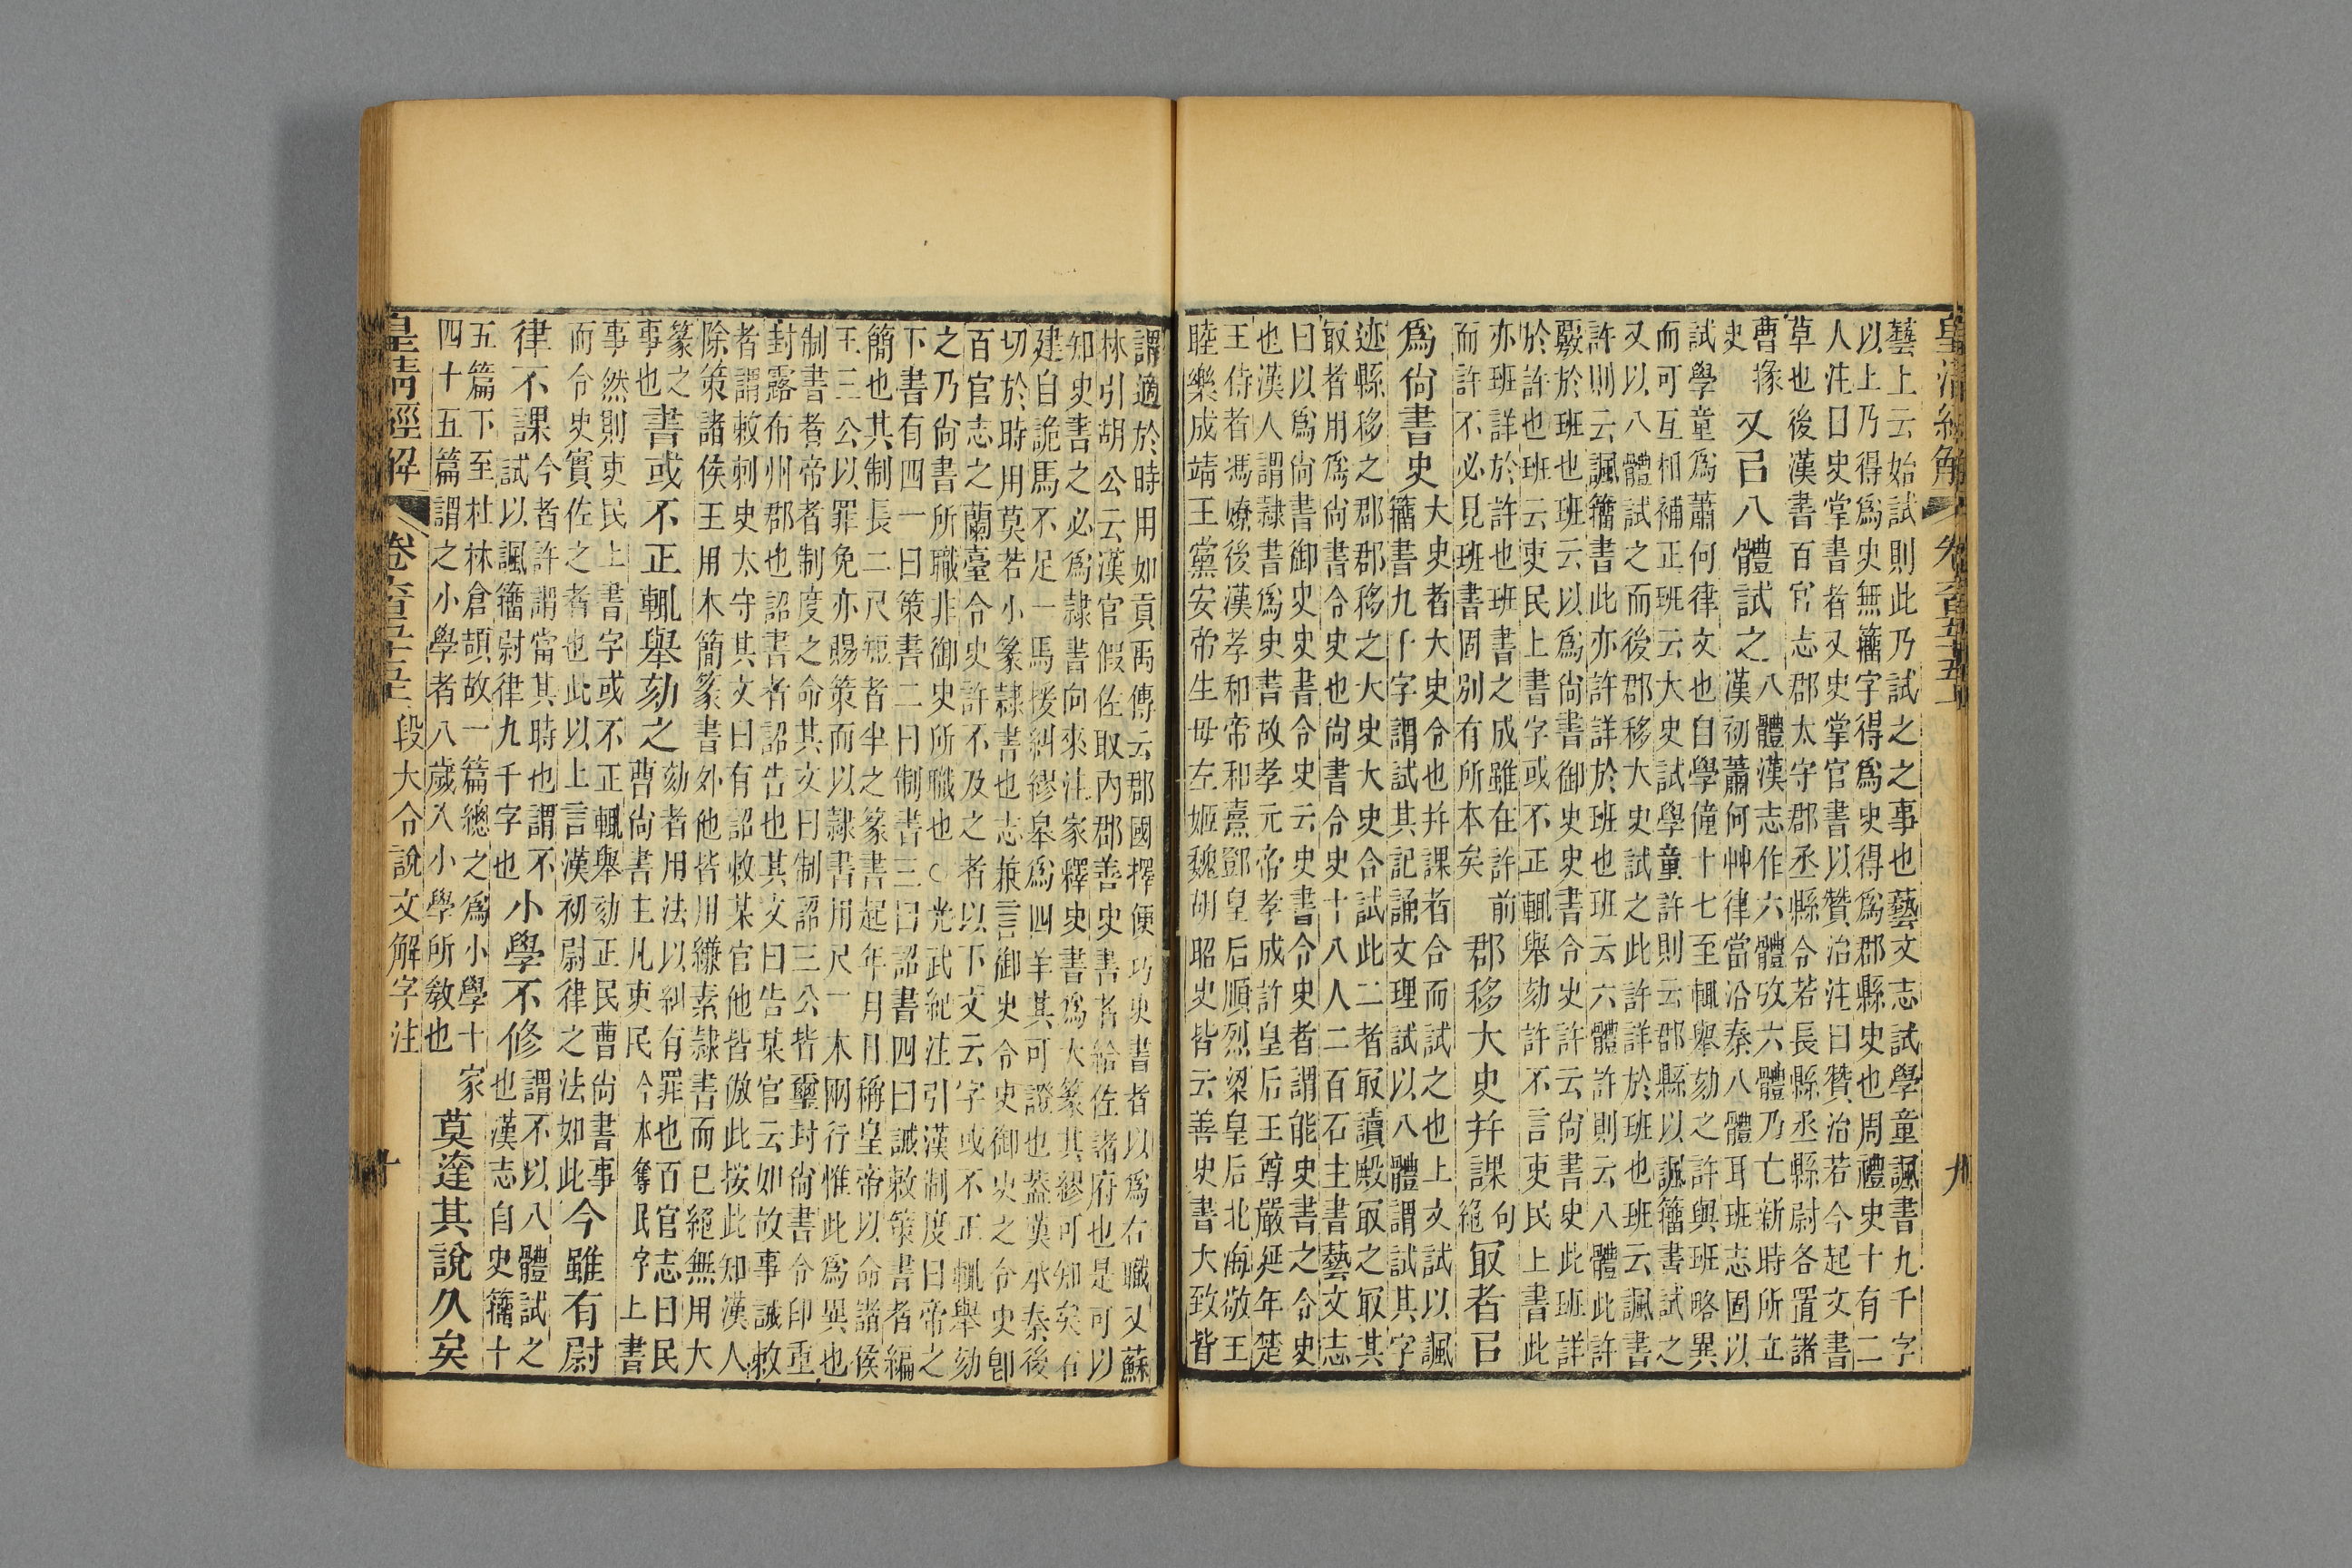 藝上云始試則此乃試之之事也藝文志試學童諷書九千字
以上乃得爲史無籒字得爲史得爲郡縣史也周禮史十有二
人注曰史掌書者又史掌官書以贊治注曰贊治若今起文書
草也後漢書百官志郡太守郡丞縣令若長縣丞縣尉各置諸
曹掾
史
又㠯八體試之
八體漢志作六體攷六體乃亡新時所立
漢初蕭何艸律當沿秦八體耳班志固以
試學童爲蕭何律文也自學僮十七至輒舉劾之許與班略異
而可互相補正班云大史試學童許則云郡縣以諷籒書試之
又以八體試之而後郡移大史試之此許詳於班也班云諷書
許則云諷籒書此亦許詳於班也班云六體許則云八體此許
覈於班也班云以爲尙書御史史書令史許云尙書史此班詳
於許也班云吏民上書字或不正輒舉劾許不言吏民上書此
亦班詳於許也班書之成雖在許前
而許不必見班書固別有所本矣
郡移大史幷課
句
絕
取者㠯
爲尙書史
大史者大史令也幷課者合而試之也上文試以諷
籒書九千字謂試其記誦文理試以八體謂試其字
迹縣移之郡郡移之大史大史合試此二者取讀殿取之取其
取者用爲尙書令史也尙書令史十八人二百石主書藝文志
曰以爲尙書御史史書令史云史書令史者謂能史書之令史
也漢人謂隷書爲史書故孝元帝孝成許皇后王尊嚴延年楚
王侍者馮嫽後漢孝和帝和熹鄧皇后順烈梁皇后北海敬王
睦樂成靖王黨安帝生母左姬魏胡昭史皆云善史書大致皆
謂適於時用如貢禹傳云郡國擇便巧史書者以爲右職又蘇
林引胡公云漢官假佐取內郡善史書者給佐諸府也是可以
知史書之必爲隷書向來注家釋史書爲大篆其繆可知矣石
建自詭馬不足一馬援糾繆皋爲四羊其可證也蓋漢承秦後
切於時用莫若小篆隷書也志兼言御史令史御史之令史卽
百官志之蘭臺令史許不及之者以下文云字或不正輒舉劾
之乃尙書所職非御史所職也○光武紀注引漢制度曰帝之
下書有四一曰策書二曰制書三曰詔書四曰誡敕策書者編
簡也其制長二尺短者半之篆書起年月日稱皇帝以命諸侯
王三公以罪免亦賜策而以隷書用尺一木兩行惟此爲異也
制書者帝者制度之命其文曰制詔三公皆璽封尙書令印重
封露布州郡也詔書者詔告也其文曰告某官云如故事誡敕
者謂敕刺史太守其文曰有詔敕某官他皆倣此按此知漢人
除策諸侯王用木簡篆書外他皆用縑素隷書而已絕無用大
篆之
事也
書或不正輒舉劾之
劾者用法以糾有罪也百官志曰民
曹尙書主凡吏民今本奪民字上書
事然則吏民上書字或不正輒舉劾正民曹尙書事
而令史實佐之者也此以上言漢初尉律之法如此
今雖有尉
律不課
今者許謂當其時也謂不
試以諷籒尉律九千字也
小學不修
謂不以八體試之
也漢志自史籒十
五篇下至杜林倉頡故一篇總之爲小學十家
四十五篇謂之小學者八歲入小學所敎也
莫達其說久矣
皇清經解
段大令說文解字注
十
九